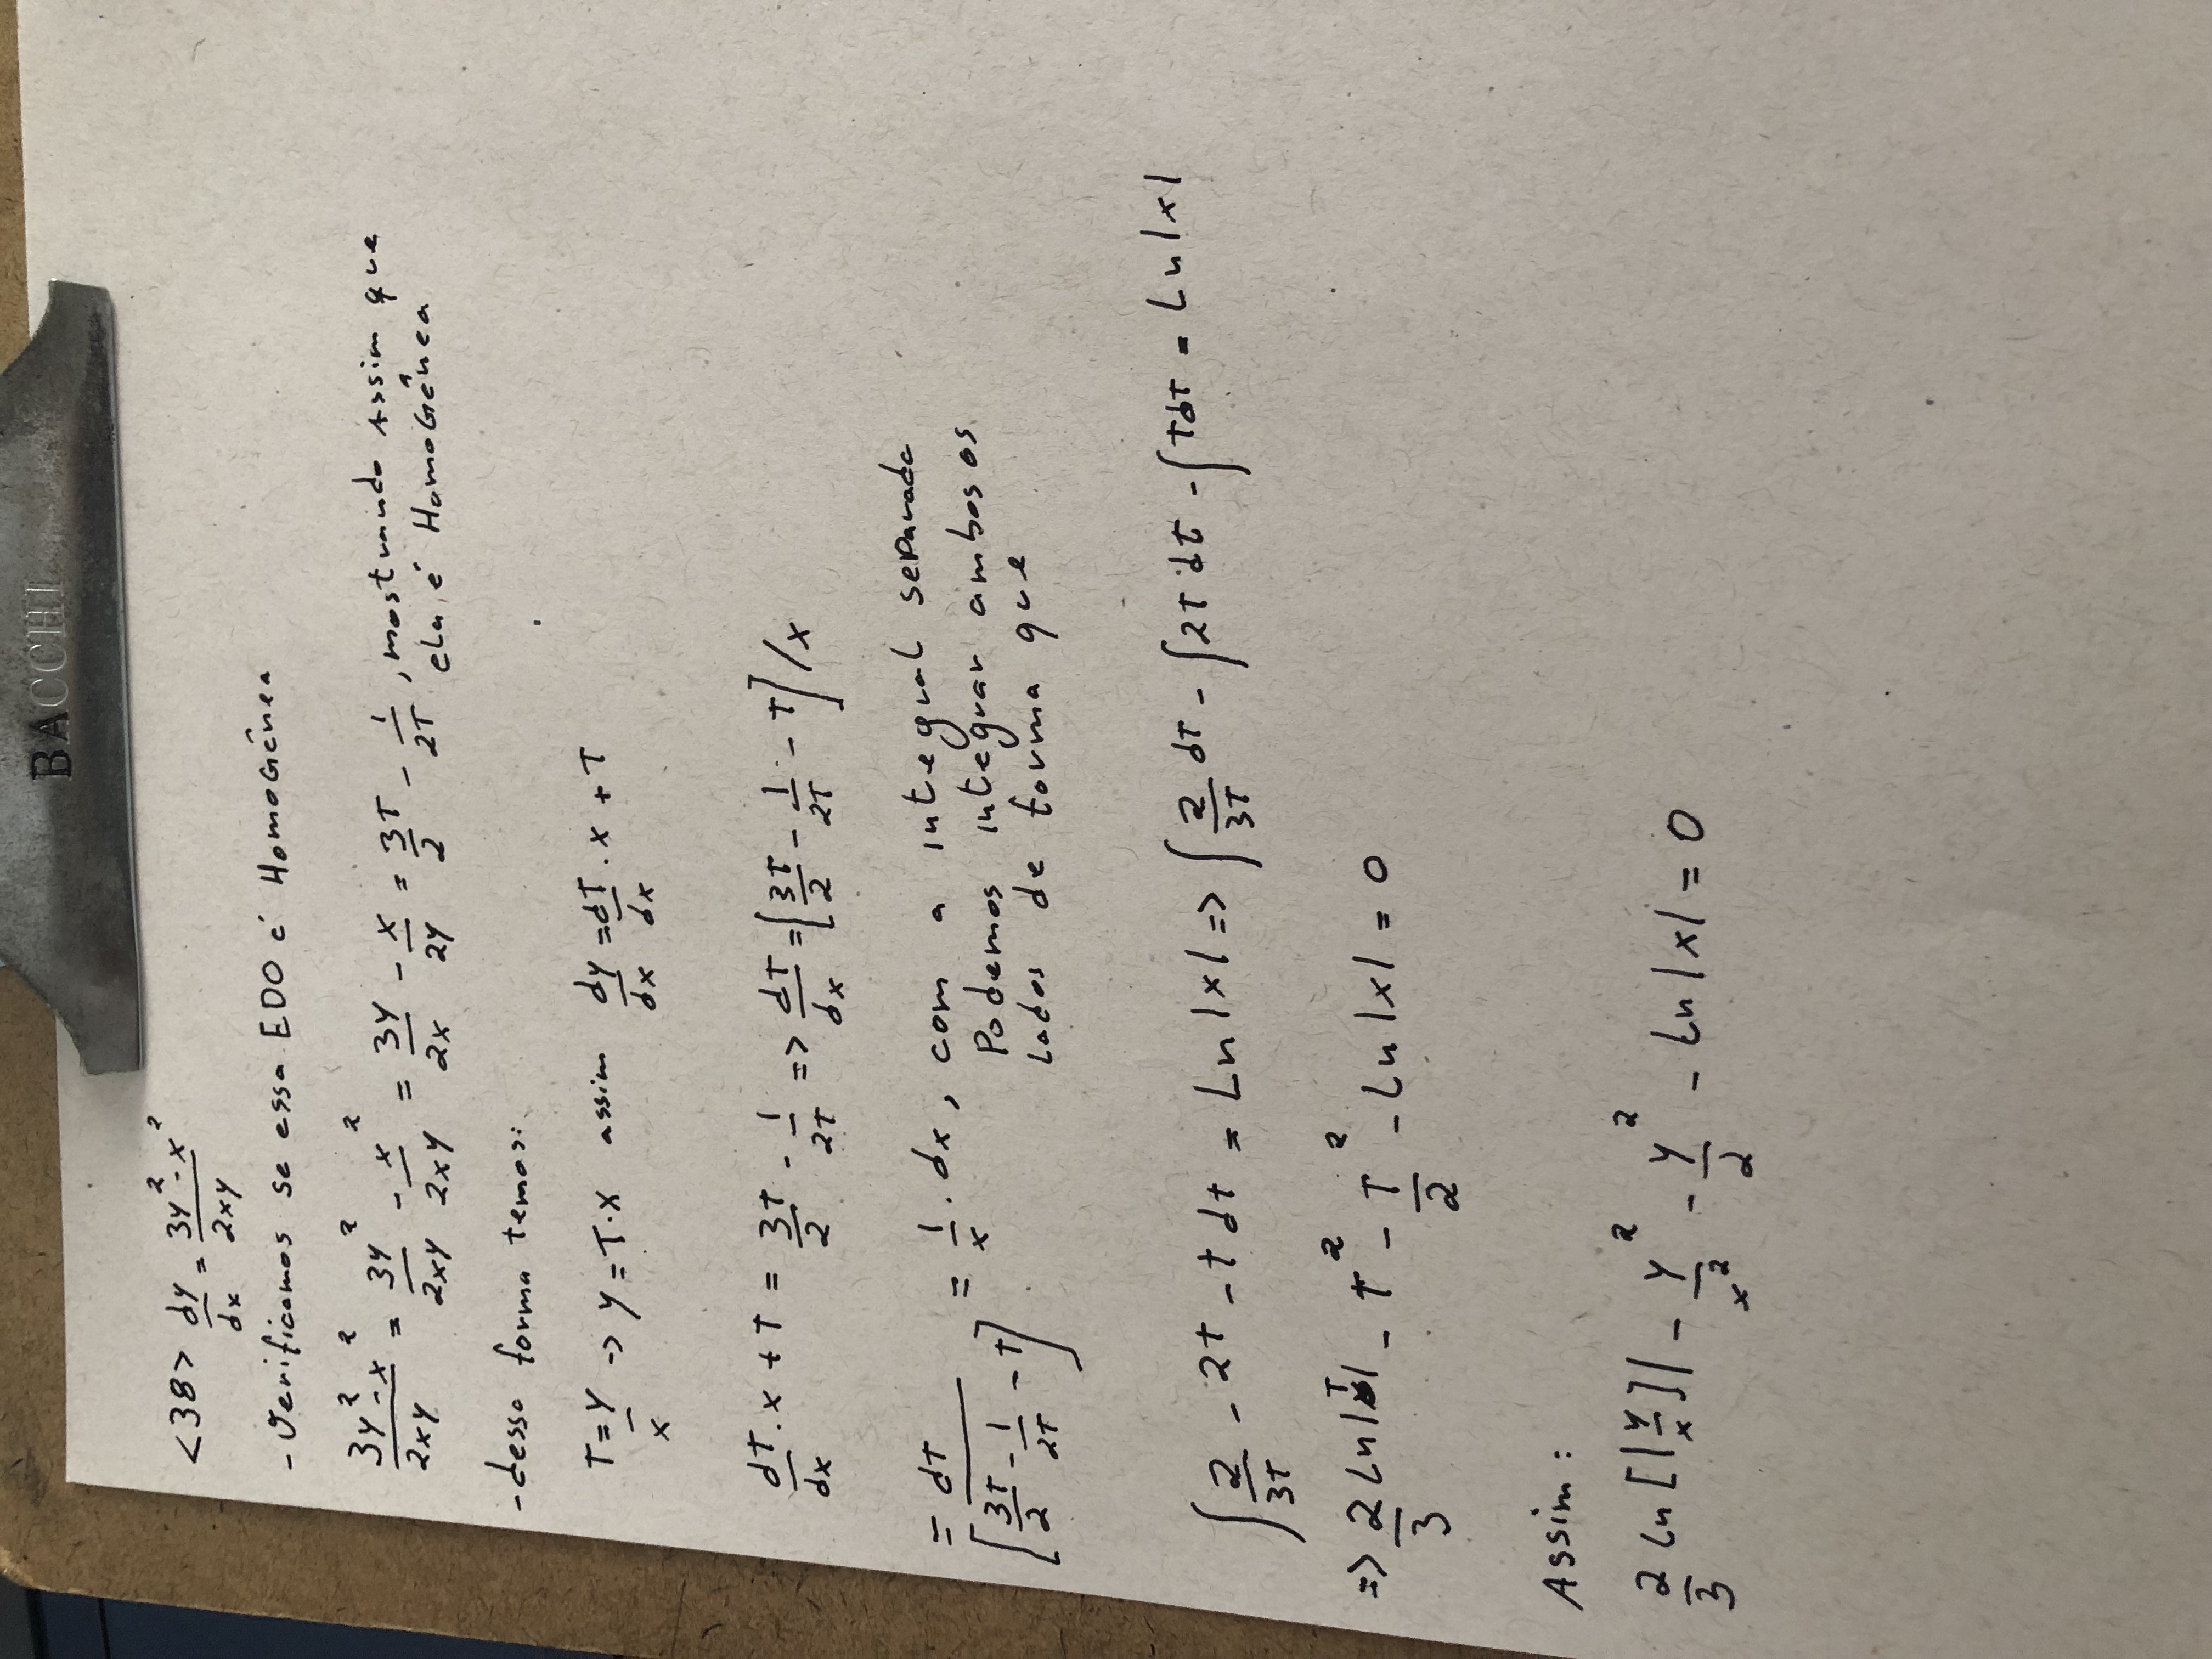 BACCHI
<38> dy/dx = (3y² - x²)/(2xy)
- Verificamos se essa EDO é HomoGênea
(3y² - x²)/(2xy) = 3y²/(2xy) - x²/(2xy) = 3y/(2x) - x/(2y) = 3T/2 - 1/(2T), mostrando Assim que
ela é HomoGênea
- dessa forma temos:
T = y/x -> y = T·x assim dy/dx = dT/dx · x + T
dT/dx · x + T = 3T/2 - 1/(2T) => dT/dx = [3T/2 - 1/(2T) - T] / x
= dT/[3T/2 - 1/(2T) - T] = 1/x · dx, com a integral separada
Podemos integrar ambos os
lados de forma que
∫ 2/(3T) - 2T - T dT = Ln|x| => ∫ 2/(3T) dT - ∫ 2T dT - ∫ T dT = Ln|x|
=> 2/3 Ln|T| - T² - T²/2 - Ln|x| = 0
Assim:
2/3 Ln[|y/x]| - y²/x² - y²/2 - Ln|x| = 0